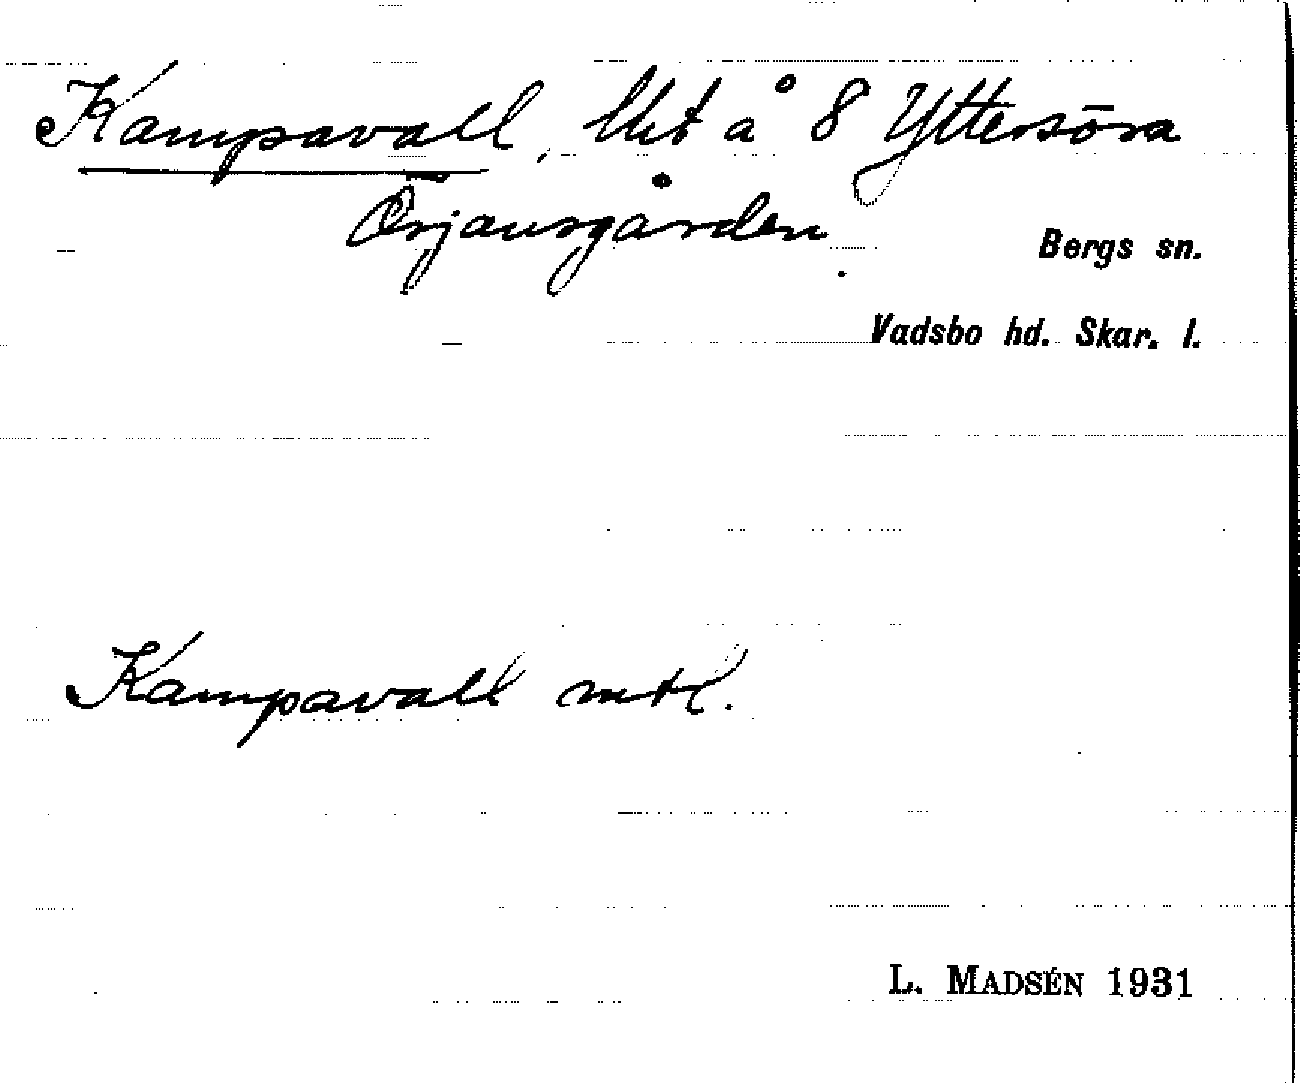 Kampavall, lht å 8 Yttersöra
Örjansgården.
Bergs sn.
Vadsbo hd. Skar. l.
Kampavall mtl.
L. MADSÉN 1931